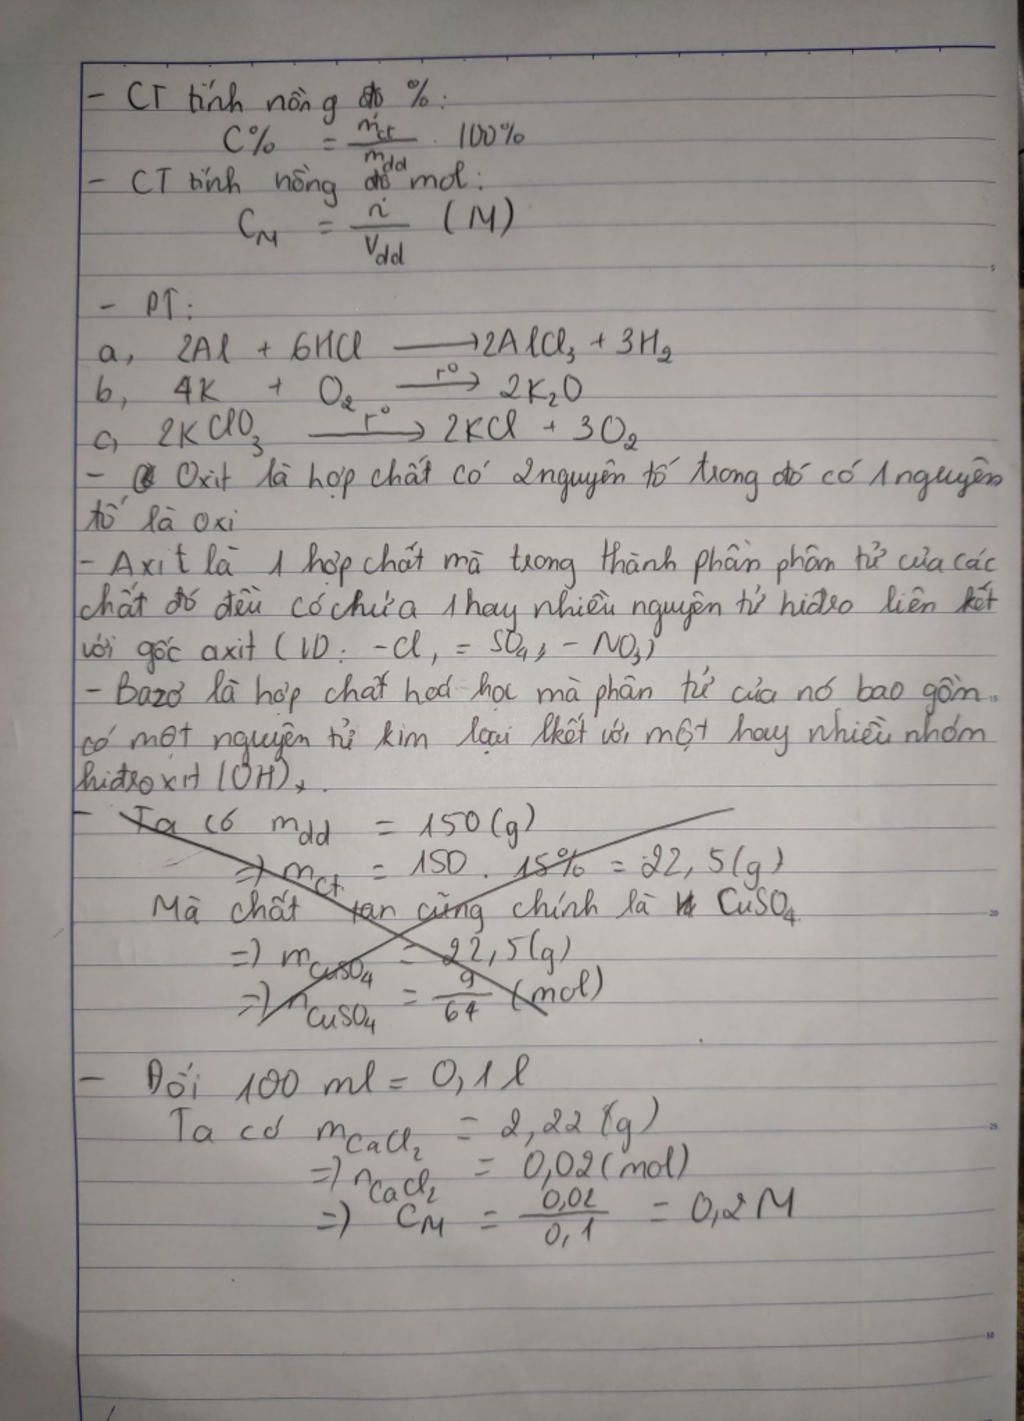 - CT tính nồng độ %:
C% = mct/mdd . 100%
- CT tính nồng độ mol:
CM = n/Vdd (M)
- PT:
a, 2Al + 6HCl → 2AlCl3 + 3H2
b, 4K + O2 →t° 2K2O
c, 2KClO3 →t° 2KCl + 3O2
- Oxit là hợp chất có 2 nguyên tố trong đó có 1 nguyên
tố là oxi
- Axit là 1 hợp chất mà trong thành phần phân tử của các
chất đó đều có chứa 1 hay nhiều nguyên tử hiđro liên kết
với gốc axit (VD: -Cl, = SO4, - NO3)
- Bazơ là hợp chất hoá học mà phân tử của nó bao gồm
có một nguyên tử kim loại lkết với một hay nhiều nhóm
hiđroxit (OH)
- Ta có mdd = 150 (g)
=) mct = 150 . 15% = 22,5 (g)
Mà chất tan cũng chính là CuSO4
=) mCuSO4 = 22,5 (g)
=) nCuSO4 = 9/64 (mol)
- Đổi 100 ml = 0,1 l
Ta có mCaCl2 = 2,22 (g)
=) nCaCl2 = 0,02 (mol)
=) CM = 0,02/0,1 = 0,2M